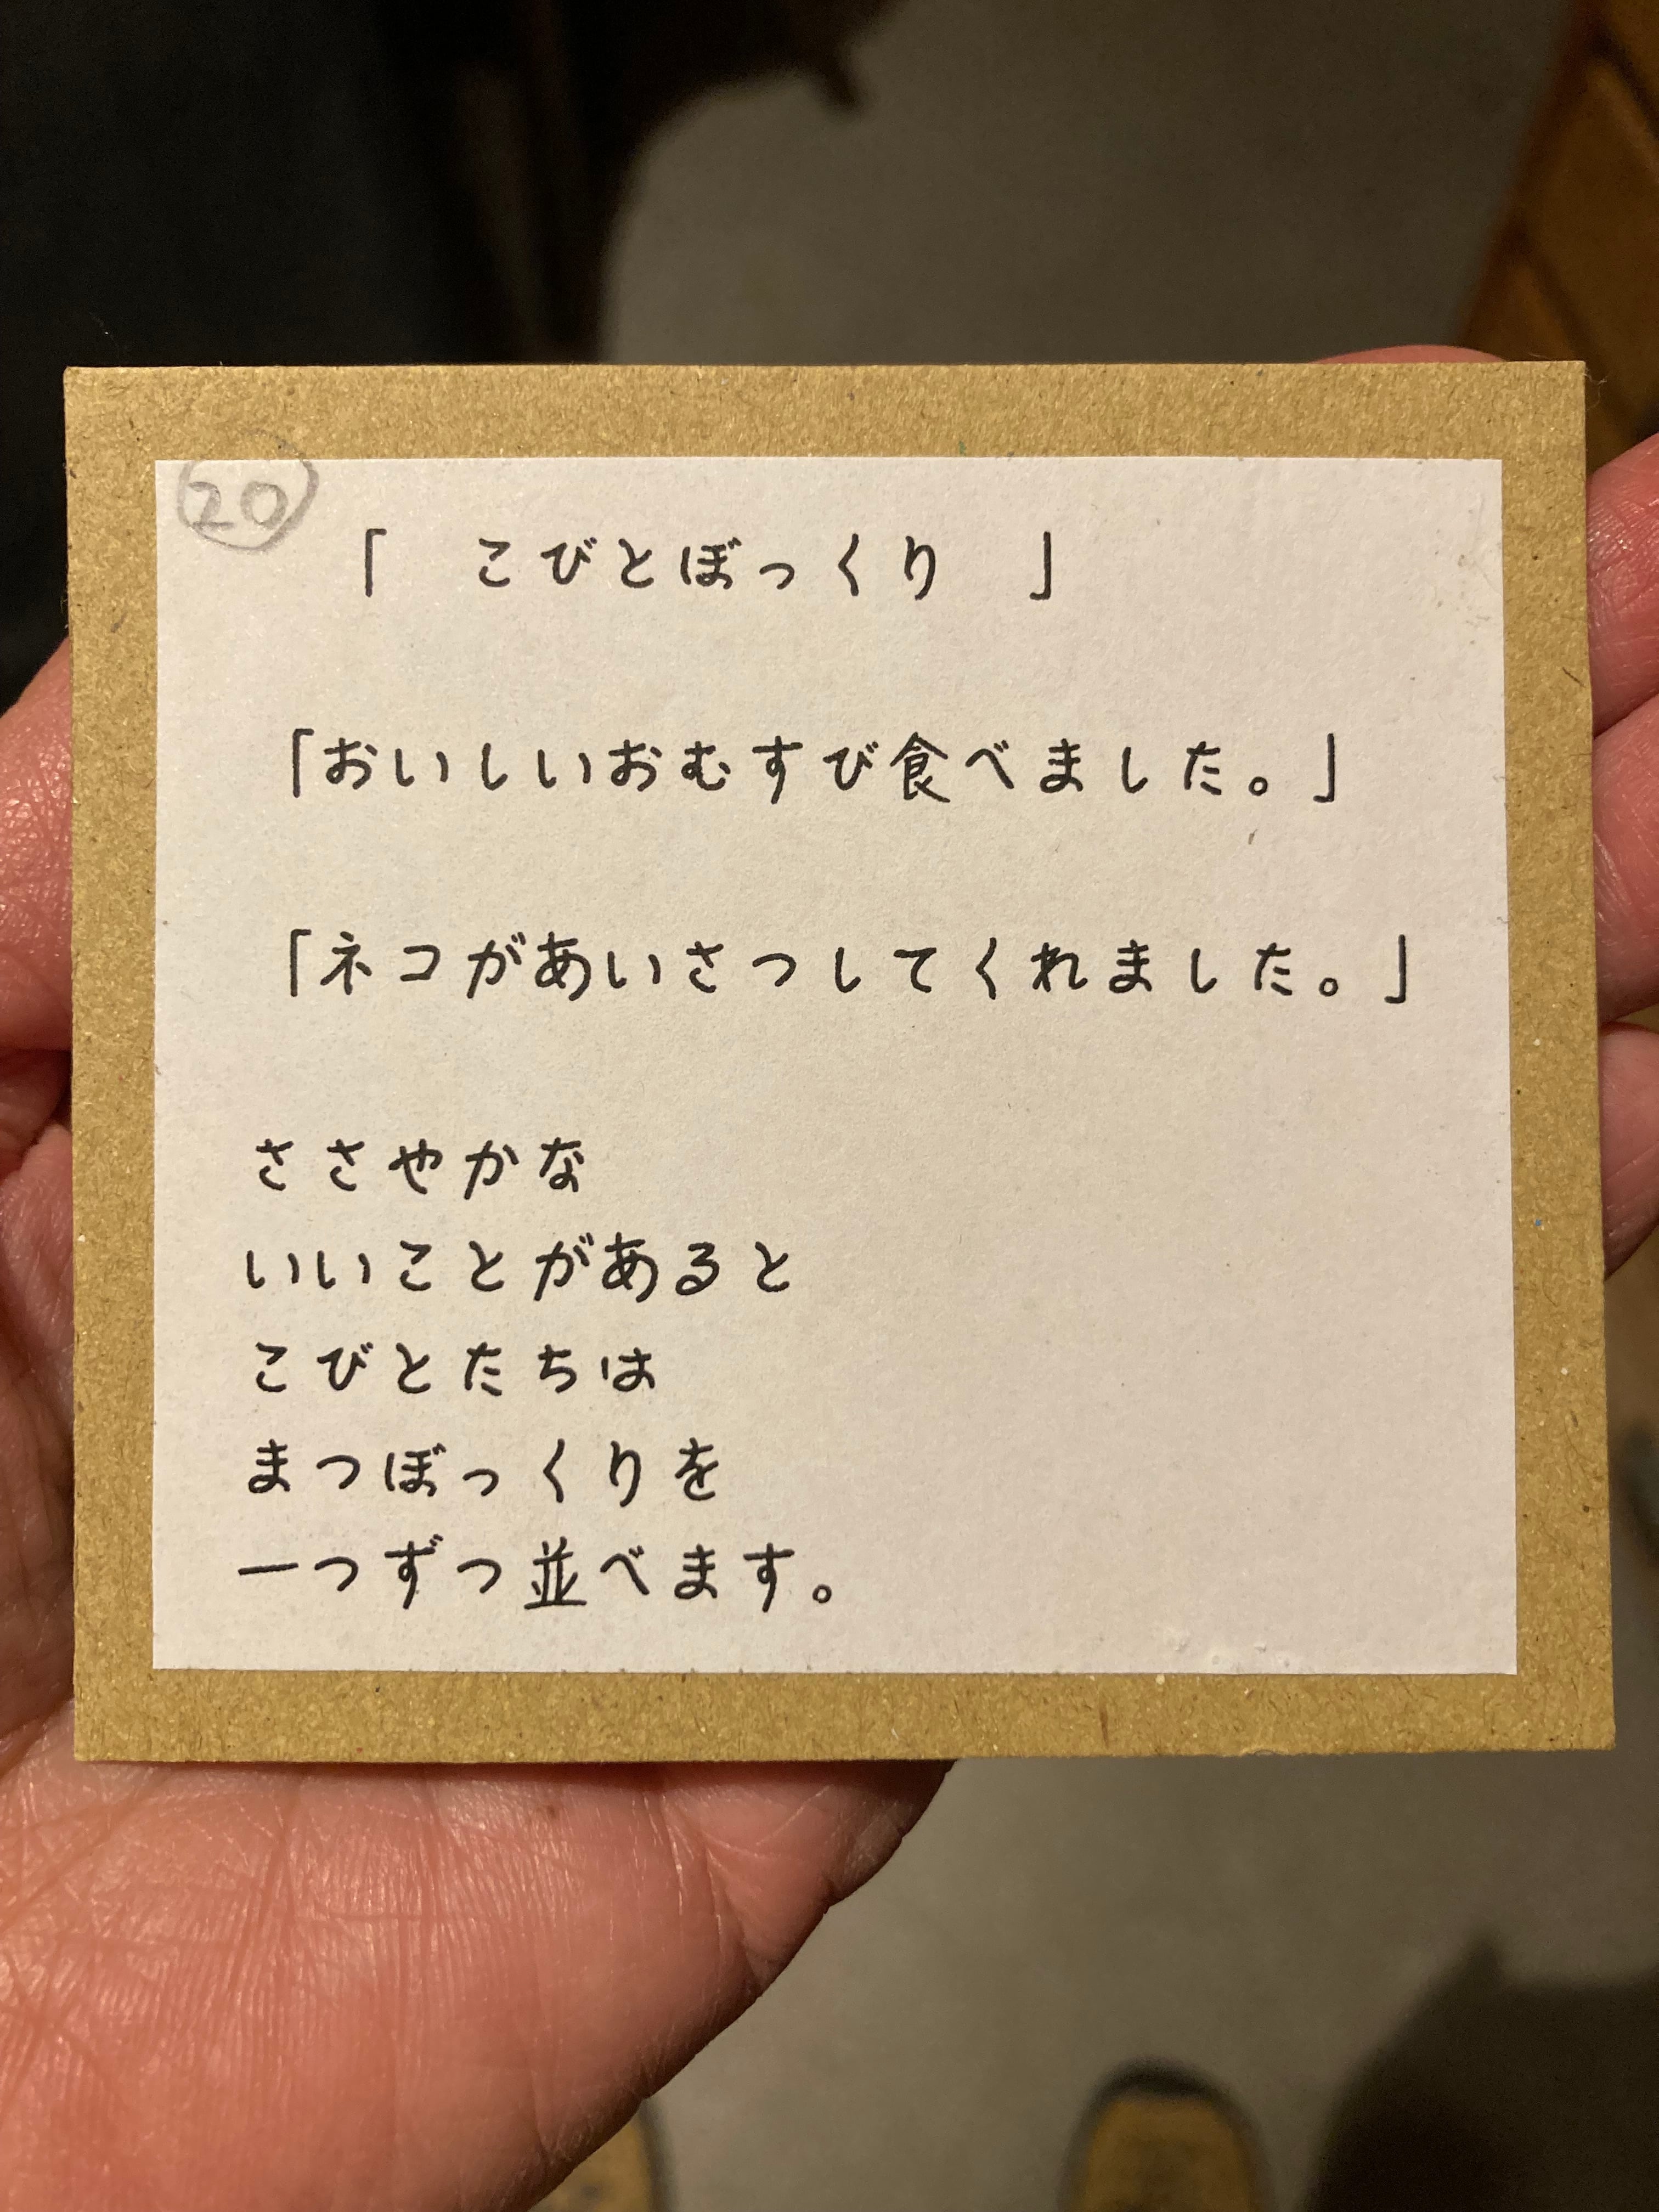 ⑳
「　こびとぼっくり　」
「おいしいおむすび食べました。」
「ネコがあいさつしてくれました。」
ささやかな
いいことがあると
こびとたちは
まつぼっくりを
一つずつ並べます。